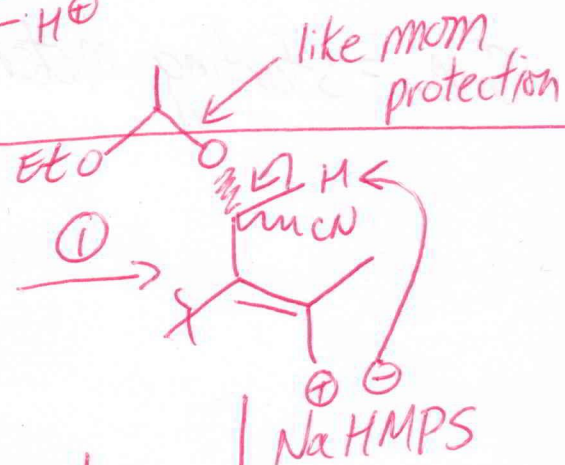 - H⊕
like mom
protection
EtO
O
H
CN
①
⊕ ⊖
NaHMPS